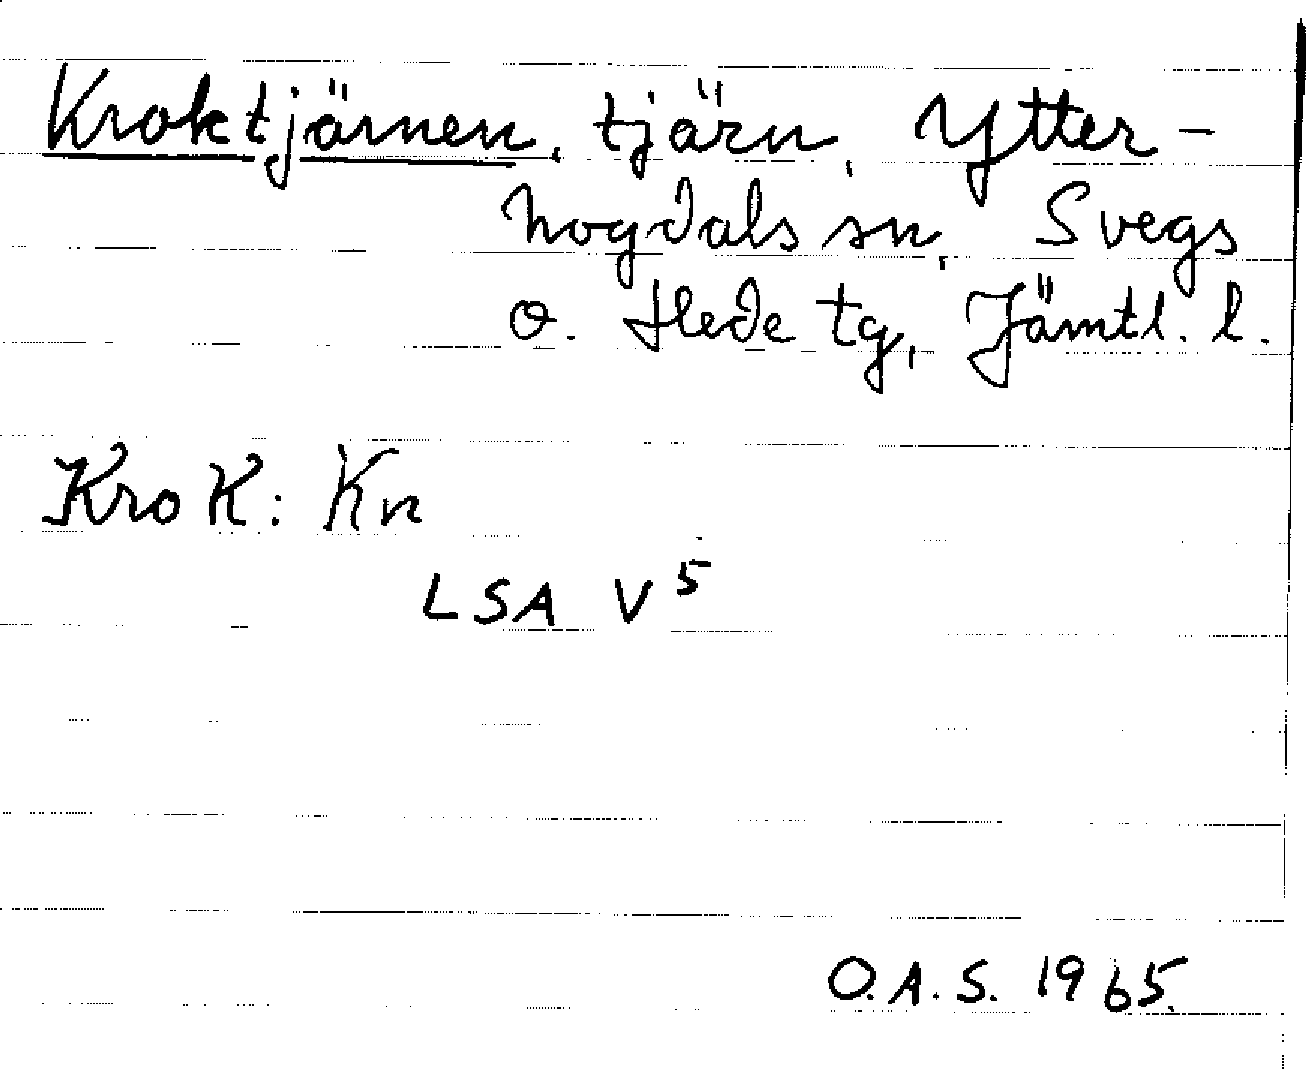 Kroktjärnen, tjärn, Ytter-
hogdals sn, Svegs
o. Hede tg, Jämtl. l.
Krok: Kn
LSA V 5
O.A.S. 1965.